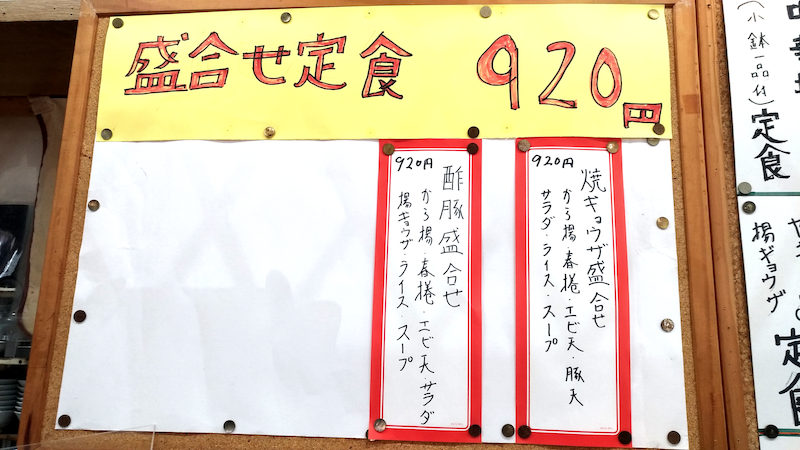 盛合せ定食 920円
焼ギョウザ盛合せ
920円
から揚・春捲・エビ天・豚天
サラダ・ライス・スープ
酢豚盛合せ
920円
から揚・春捲・エビ天・サラダ
揚ギョウザ・ライス・スープ
(小鉢一品付)定食
揚ギョウザ
定食